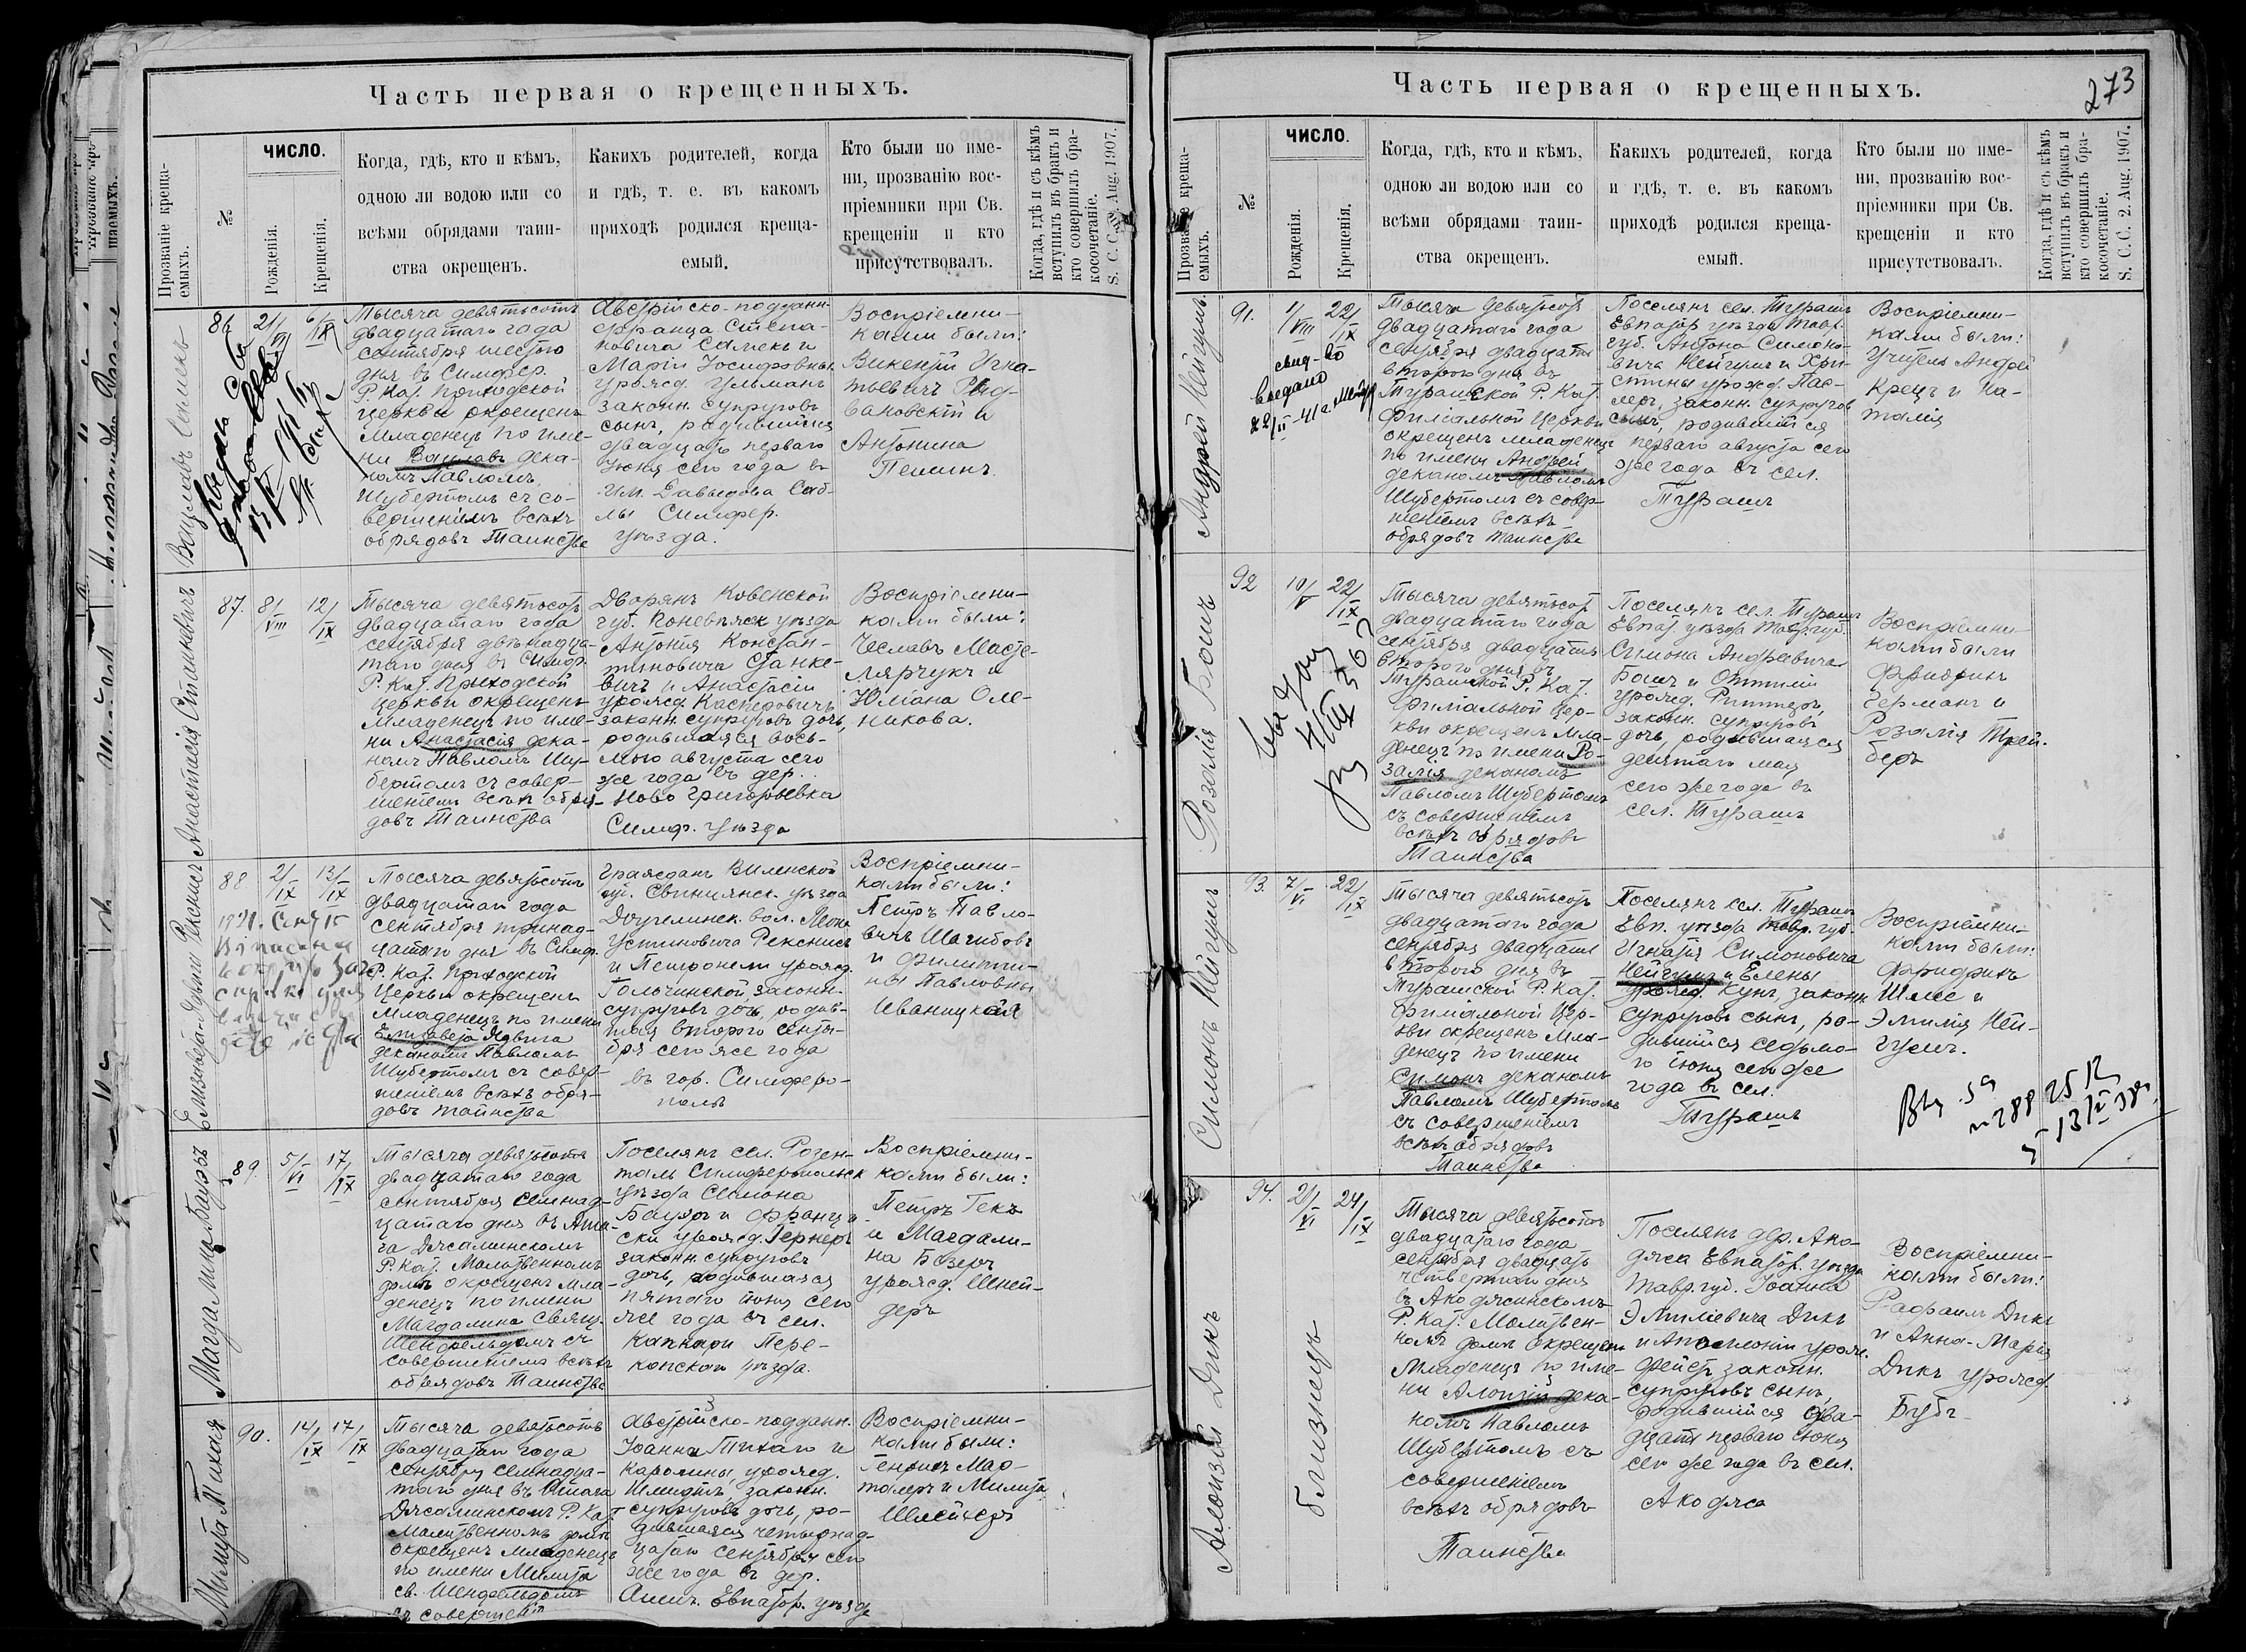 Часть первая о крещенныхъ.
Прозваніе креща-
емыхъ.
№
ЧИСЛО.
Рожденія.
Крещенія.
Когда, гдѣ, кто и кѣмъ,
одною ли водою или со
всѣми обрядами таин-
ства окрещенъ.
Какихъ родителей, когда
и гдѣ, т. е. въ какомъ
приходѣ родился креща-
емый.
Кто были по име-
ни, прозванію вос-
пріемники при Св.
крещеніи и кто
присутствовалъ.
Когда, гдѣ и съ кѣмъ
вступилъ въ бракъ и
кто совершилъ бра-
косочетаніе.
Aug. 1907.
Вацлавъ
86
6/IX
Тысяча девятьсотъ
двадцатаго года
сентября шестого
дня въ Симфер.
Р. Кат. Приходской
церкви окрещенъ
младенецъ по име-
ни Вацлавъ дека-
номъ Павломъ
Шубертомъ съ со-
вершеніемъ всѣхъ
обрядовъ Таинства
Австрійско-поддан-
Франца Степа-
новича
Маріи Іосифовны
урожд. Ульманъ
законн. супруговъ
сынъ, родившійся
двадцать перваго
Іюня сего года въ
им. Давыдова Саб-
лы Симфер.
уѣзда.
Воспріемни-
ками были:
Викентій Игна-
тьевичъ
Антонина
Анастасія Станкевичъ
87.
8/VIII
12/IX
Тысяча девятьсотъ
двадцатаго года
сентября двѣнадца-
таго дня въ Симф.
Р. Кат. Приходской
церкви окрещенъ
младенецъ по име-
ни Анастасія дека-
номъ Павломъ Шу-
бертомъ съ совер-
шеніемъ всѣхъ обря-
довъ Таинства
Дворянъ Ковенской
губ. Поневѣжск уѣзда
Антонія Констан-
тиновича Станке-
вичъ и Анастасіи
урожд. Касперовичъ
законн. супруговъ дочь,
родившаяся вось-
мого августа сего
же года въ дер.
Ново Григорьевка
Симф. уѣзда
Воспріемни-
ками были:
Чеславъ Масте-
лярчукъ и
Юліана Оле-
никова.
Елизавета-Ядвига Рекснисъ
88
2/IX
13/IX
Тысяча девятьсотъ
двадцатаго года
сентября тринад-
цатаго дня въ Симф.
Р. Кат. Приходской
церкви окрещенъ
младенецъ по имени
Елизавета Ядвига
деканомъ Павломъ
Шубертомъ съ совер-
шеніемъ всѣхъ обря-
довъ Таинства
Гражданъ Виленской
губ. Свенцянск. уѣзда
вол.
Устиновича Рекснисъ
и Петронели урожд.
Гольчинской, законн.
супруговъ дочь, родив-
шая второго сентя-
бря сего же года
въ гор. Симферо-
поль
Воспріемни-
ками были:
Петръ Павло-
вичъ
и Филиппи-
ны Павловны
Иваницкая
Магдалина Бауэръ
89.
5/VI
17/IX
Тысяча девятьсотъ
двадцатаго года
сентября семнад-
цатаго дня въ Ата-
га Джаминскомъ
Р. Кат. Молитвенномъ
домѣ окрещенъ мла-
денецъ по имени
Магдалина Свящ.
Шенфельдомъ съ
совершеніемъ всѣхъ
обрядовъ Таинства
Поселянъ сел. Розен-
таль Симферопольск
уѣзда Семона
Бауэръ и Францис-
ски урожд. Гернеръ
законн. супруговъ
дочь, родившаяся
пятаго іюня сего
же года въ сел.
Каппари Пере-
копскаго уѣзда.
Воспріемни-
ками были:
Петръ Гекъ
и Магдали-
на Бозеръ
урожд. Шней-
деръ
Тихая
90.
14/IX
17/IX
Тысяча девятьсотъ
двадцатаго года
сентября семнадца-
таго дня въ Атага
Джаминскомъ Р. Кат.
Молитвенномъ домѣ
окрещенъ младенецъ
по имени
св. Шенфельдомъ
съ совершені
Австрійско-поддан.
Іоанна Тихаго и
Каролины, урожд.
Шмидтъ, законн.
супруговъ дочь, ро-
дившаяся четырнад-
цатаго сентября сего
же года въ дер.
Евпатор. уѣзда
Воспріемни-
ками были:
Генрихъ Мар-
талеръ и
Шлейхеръ
Часть первая о крещенныхъ.
273
Прозваніе креща-
емыхъ.
№
ЧИСЛО.
Рожденія.
Крещенія.
Когда, гдѣ, кто и кѣмъ,
одною ли водою или со
всѣми обрядами таин-
ства окрещенъ.
Какихъ родителей, когда
и гдѣ, т. е. въ какомъ
приходѣ родился креща-
емый.
Кто были по име-
ни, прозванію вос-
пріемники при Св.
крещеніи и кто
присутствовалъ.
Когда, гдѣ и съ кѣмъ
вступилъ въ бракъ и
кто совершилъ бра-
косочетаніе.
S. C. C. 2. Aug. 1907.
Андрей Нейгумъ
91.
1/VIII
22/IX
свид-во
выдано
Тысяча девятьсот
двадцатаго года
сентября двадцать
второго дня въ
Турашской Р. Кат.
Филіальной Церкви
окрещенъ младенецъ
по имени Андрей
деканомъ Павломъ
Шубертомъ съ совер-
шеніемъ всѣхъ
обрядовъ таинства
Поселянъ сел. Турашъ
Евпатор уѣзда Тавр.
губ. Антона Симоно-
вича Нейгумъ и Хри-
стины урожд.
законн. супругов
сынъ, родившійся
перваго августа сего
же года въ сел.
Турашъ
Воспріемни-
ками были:
Учитель Андрей
Крецъ и На-
талія
Розалія Бошъ
92
10/V
22/IX
Тысяча девятьсот
двадцатаго года
сентября двадцать
второго дня въ
Турашской Р. Кат.
Филіальной Цер-
кви окрещенъ мла-
денецъ по имени Ро-
залія деканомъ
Павломъ Шубертомъ
съ совершеніемъ
всѣхъ обрядовъ
Таинства
Поселянъ сел. Турашъ
Евпат. уѣзда Тавр. губ.
Симона Андреевича
Бошъ и Оттиліи
урожд. Риттеръ,
законн. супруговъ
дочь, родившаяся
девятаго мая
сего же года въ
сел. Турашъ
Воспріемни-
ками были
Фридрихъ
Германъ и
Розалія Трей-
беръ
Симонъ Нейгумъ
93.
7/VI
22/IX
Тысяча девятьсот
двадцатаго года
сентября двадцать
второго дня въ
Турашской Р. Кат.
Филіальной Цер-
кви окрещенъ мла-
денецъ по имени
Симонъ деканомъ
Павломъ Шубертомъ
съ совершеніемъ
всѣхъ обрядовъ
Таинства
Поселянъ сел. Турашъ
Евп. уѣзда Тавр. губ.
Игнатія Симоновича
Нейгумъ и Елены
урожд. Кунъ, законн
супруговъ сынъ, ро-
дившійся седьмо-
го іюня сего же
года въ сел.
Турашъ
Воспріемни-
ками были:
Фридрихъ
Шмее и
Эмилія Ней-
гумъ.
Алоизій Дикъ
94.
близнецъ
21/VI
24/IX
Тысяча девятьсотъ
двадцатаго года
сентября двадцать
четвертаго дня
въ Акоджинскомъ
Р. Кат. Молитвен-
номъ домѣ окрещенъ
младенецъ по име-
ни Алоизій дека-
номъ Павломъ
Шубертомъ съ
совершеніемъ
всѣхъ обрядовъ
Таинства
Поселянъ дер. Ако-
джа Евпатор. уѣзда
Тавр. губ. Іоанна
Эмиліевича Дикъ
и Аполлоніи урожд.
Фейстъ законн.
супруговъ сынъ,
родившійся два-
дцать перваго іюня
сего же года въ сел.
Акоджа
Воспріемни-
ками были:
Рафаилъ Дикъ
и Анна-Марія
Дикъ урожд.
Бубъ